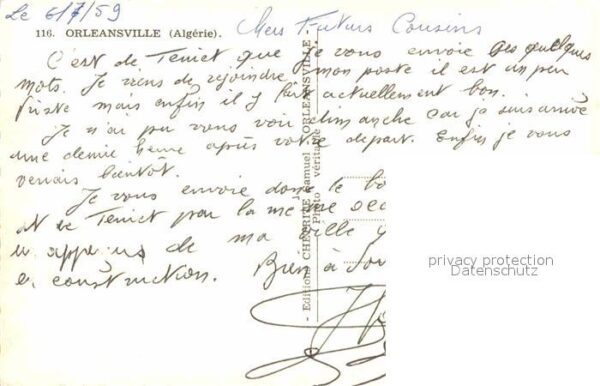 Le 6/7/59
116. ORLEANSVILLE (Algérie).
Mes Futurs Cousins
C'est de Teniet que je vous envoie ces quelques
mots. Je viens de rejoindre mon poste il est un peu
triste mais enfin il y fait actuellement bon.
Je n'ai pu vous voir dimanche car je suis arrivé
une demie heure après votre départ. Enfin je vous
verrais bientôt.
Je vous envoie donc le bo
de Teniet par la même
de ma ville
construction. Bien à
- Editions CHEKRITE Samuel, ORLEANSVILLE -
Photo véritable
privacy protection
Datenschutz